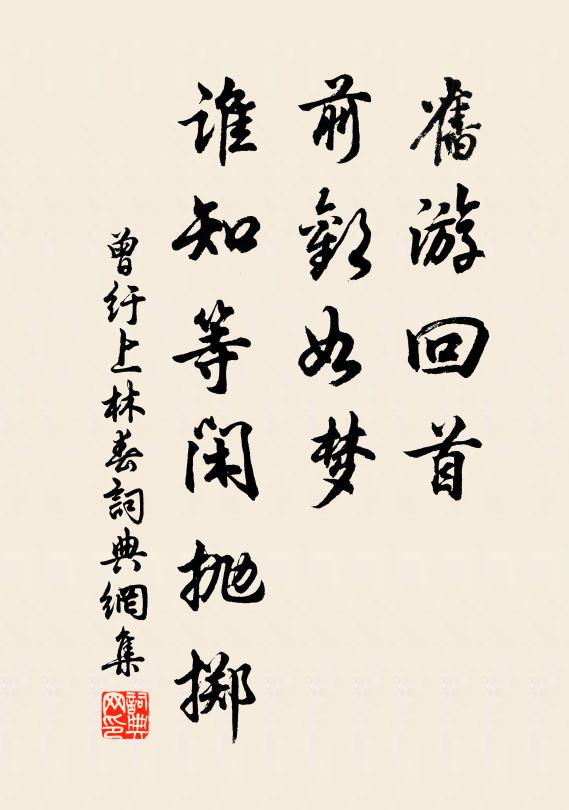 舊游回首
前歡如梦
誰知等閑抛擲
曾紆上林春詞典網集
詞典网印